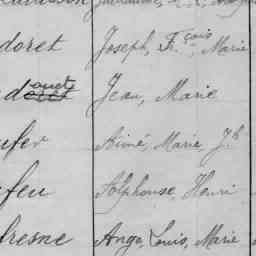 doret Joseph, Fr çois, Marie
Jean, Marie
ufer Aimé, Marie Jh
feu Alphonse, Henri
fresne Ange, Louis, Marie